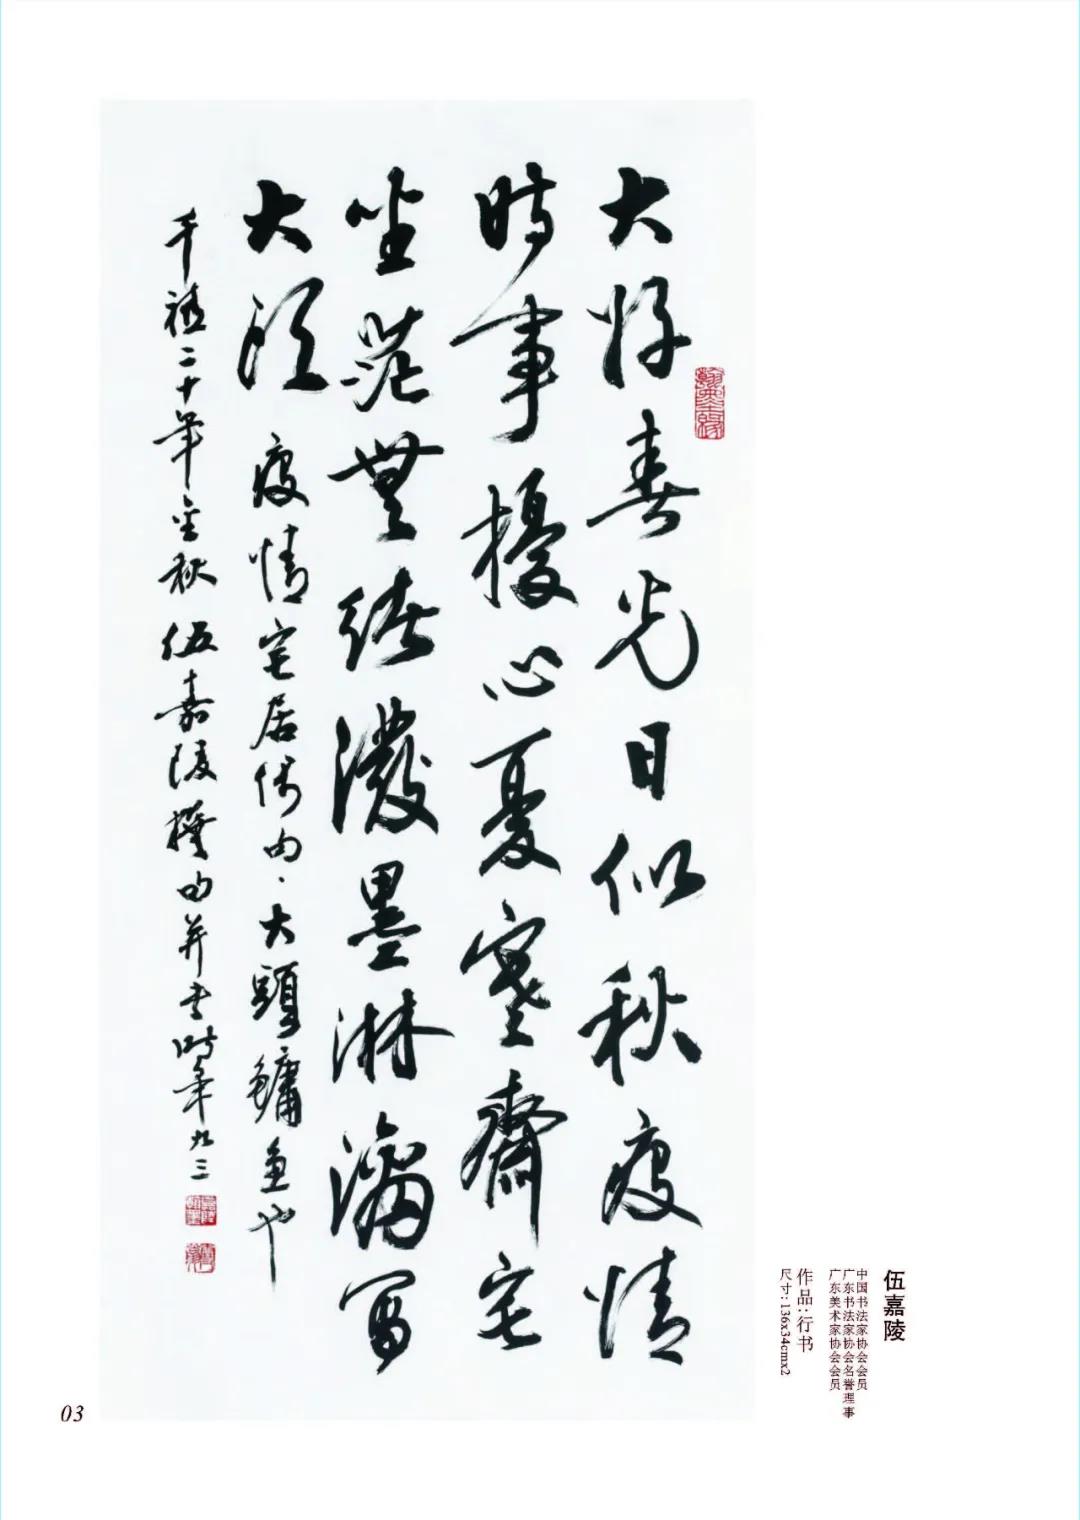 大好春光日似秋疫情
時事擾心憂寒齋宅
坐茫無緒潑墨淋漓寫
大頭 疫情宅居偶句、大頭鱅魚也
千禧二十年金秋 伍嘉陵撰句并書時年九三
伍嘉陵
中国书法家协会会员
广东书法家协会名誉理事
广东美术家协会会员
作品：行书
尺寸：136x34cmx2
03